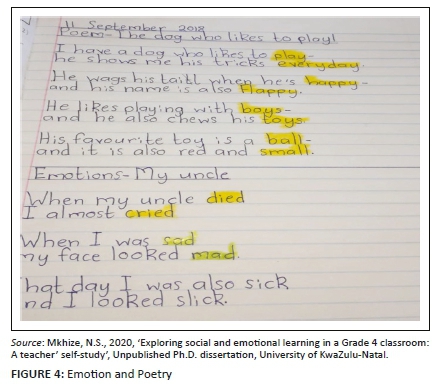 11 September 2018
Poem-The dog who likes to play!
I have a dog who likes to play-
he shows me his tricks everyday.
He wags his taitl when he's happy-
and his name is also Flappy.
He likes playing with boys-
and he also chews his toys.
His favourite toy is a ball-
and it is also red and small.
Emotions-My uncle
When my uncle died
I almost cried.
When I was sad
my face looked mad.
That day I was also sick
nd I looked slick.
Source: Mkhize, N.S., 2020, 'Exploring social and emotional learning in a Grade 4 classroom:
A teacher' self-study', Unpublished Ph.D. dissertation, University of KwaZulu-Natal.
FIGURE 4: Emotion and Poetry